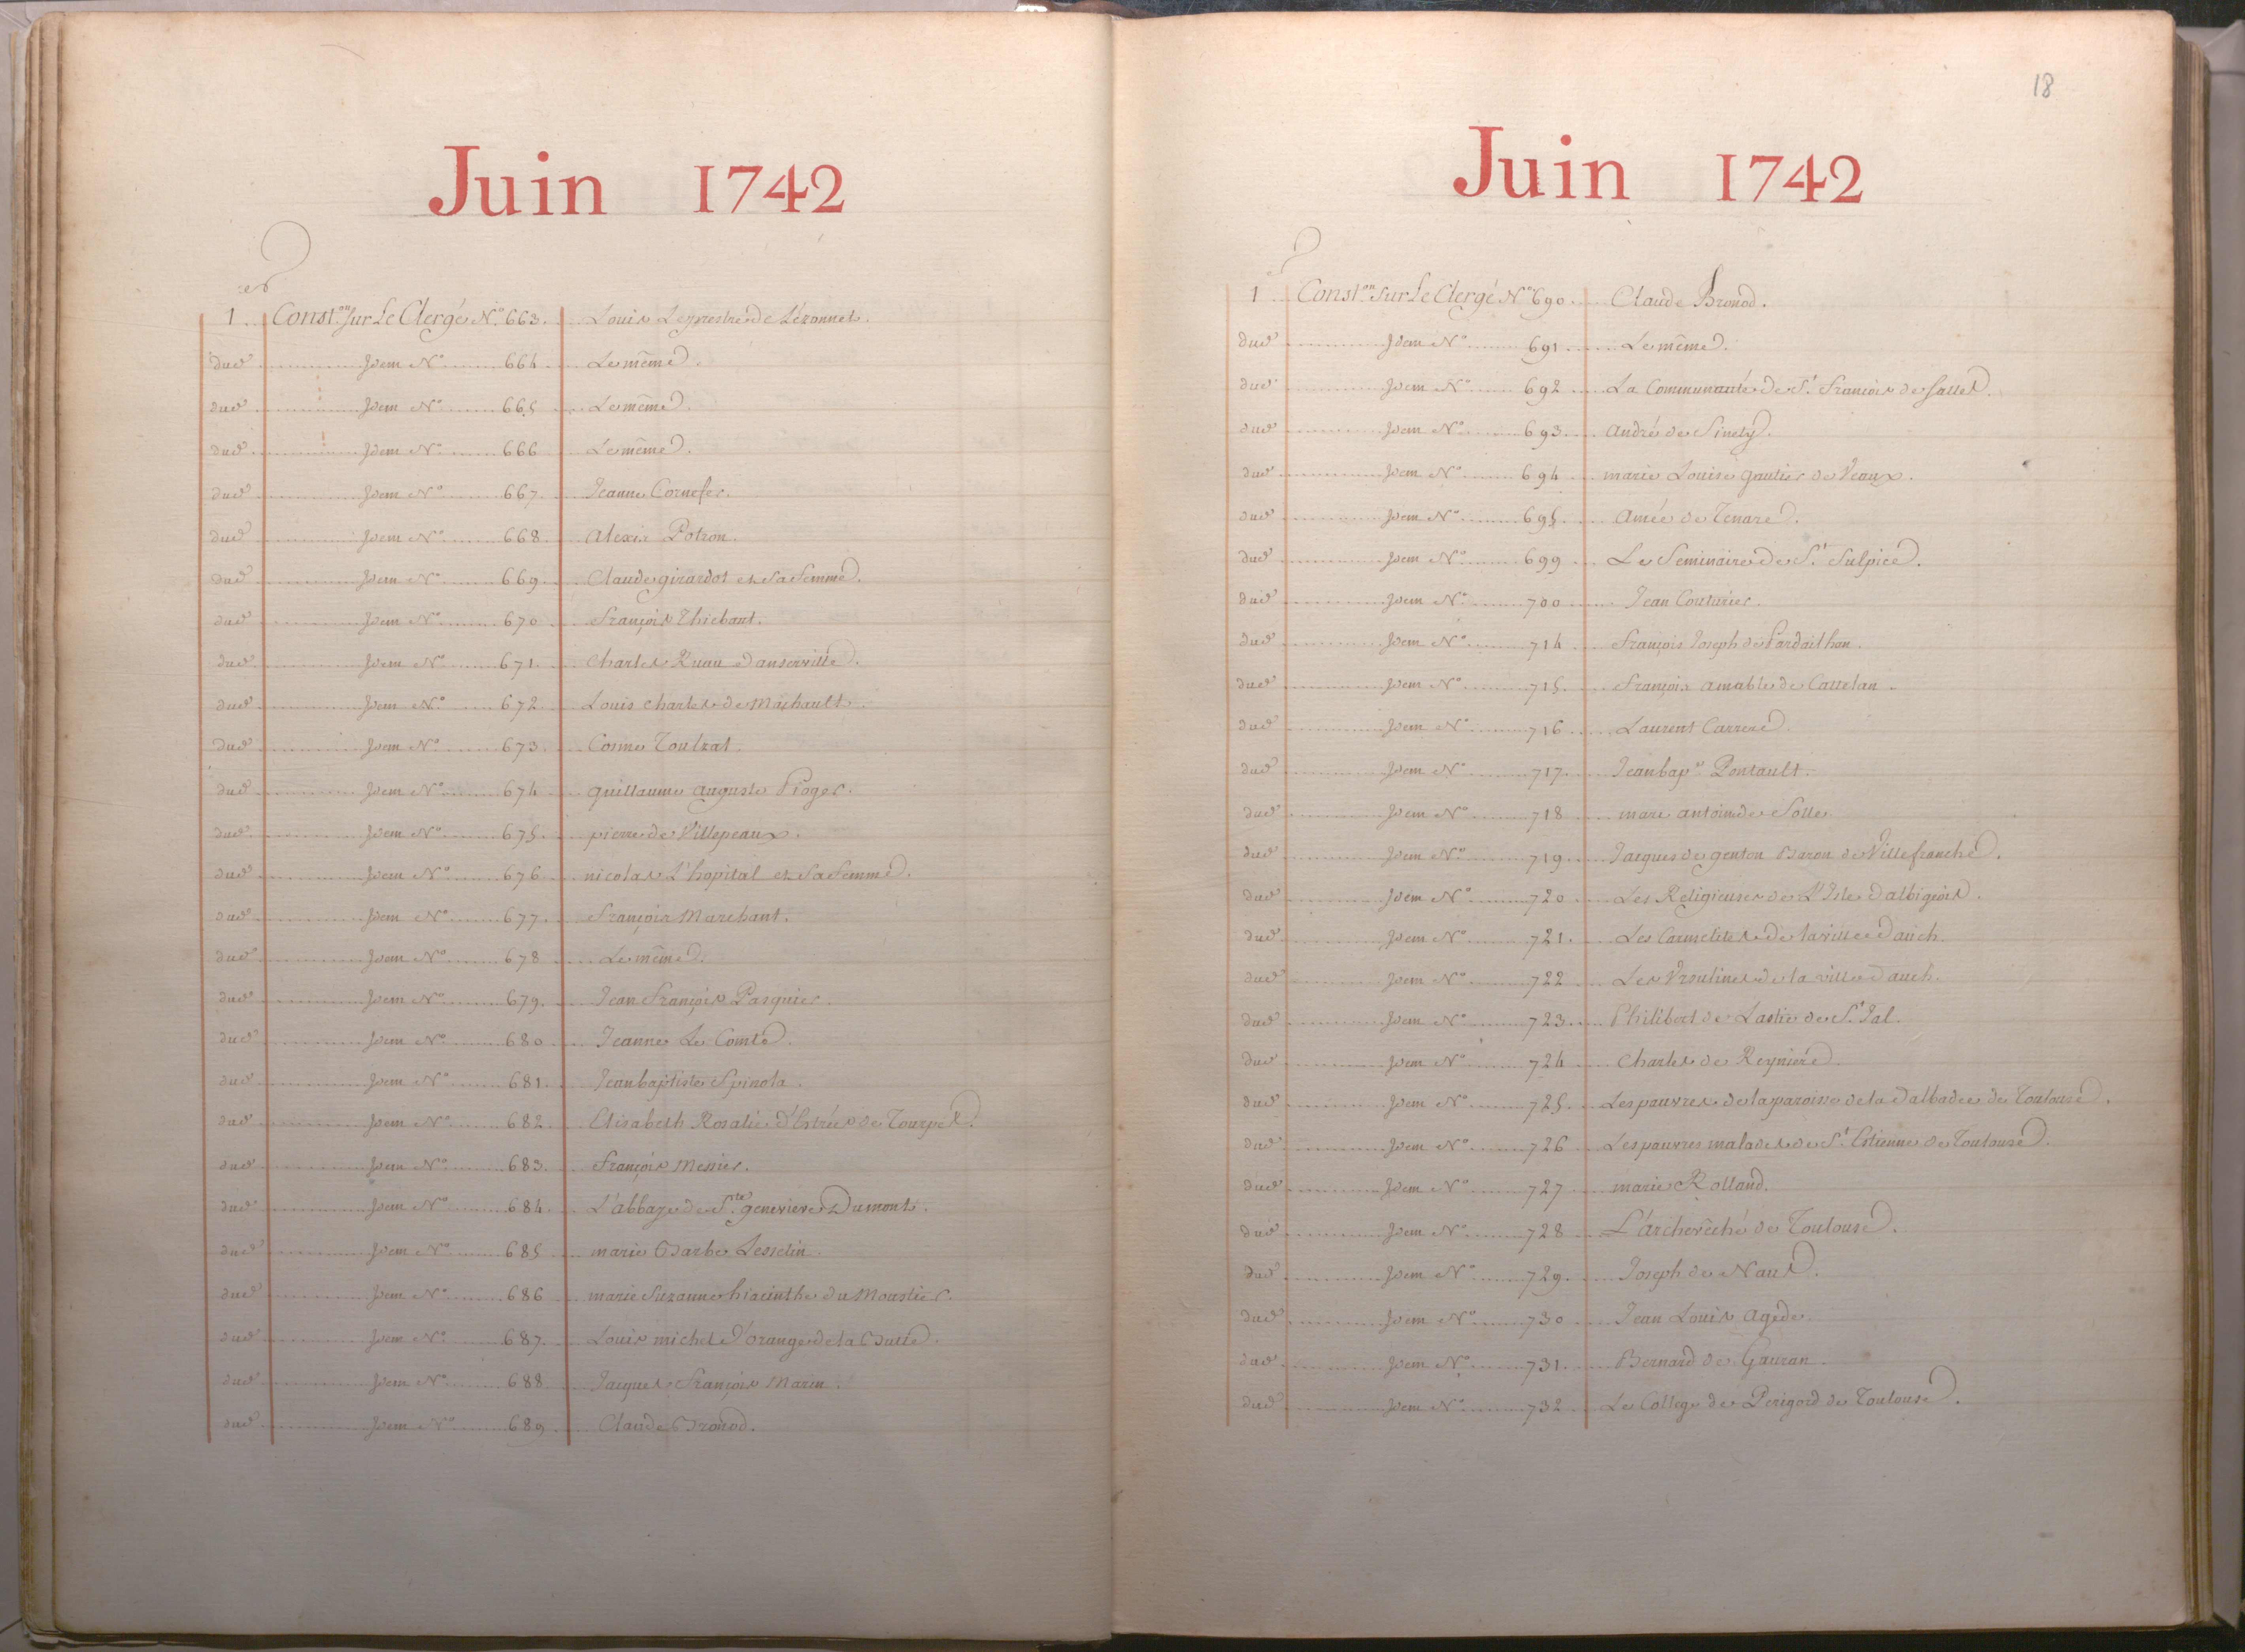 Juin 1742
1er Conston sur Le Clergé No. 663. Louis Leprestre de Lézonnet.
dud. Idem No. 664 Le même.
dud. Idem No. 665 Le même.
dud. Idem No. 666 Le même.
dud. Idem No. 667. Jeanne Cornefer.
dud. Idem No. 668. Alexis Potron.
dud. Idem No. 669. Claude girardot et Sa femme.
dud. Idem No. 670 François Thiebaut.
dud. Idem No. 671. Charles Ruau Danserville.
dud. Idem No. 672 Louis Charles de Machault.
dud. Idem No. 673. Cosme Toulzat.
dud. Idem No. 674 guillaume auguste Pioger.
dud. Idem No. 675. pierre de Villepeaux.
dud. Idem No. 676 nicolas L'hopital et Sa femme.
dud. Idem No. 677. François Marchant.
dud. Idem No. 678 Le même.
dud. Idem No. 679. Jean François Pasquier.
dud. Idem No. 680 Jeanne Le Comte.
dud. Idem No. 681. Jean baptiste Spinola.
dud. Idem No. 682 Elisabeth Rosalie d'Estrées de Tourpes.
dud. Idem No. 683. François Menier.
dud. Idem No. 684 L'abbaye de Ste. genevieve Dumont.
dud. Idem No. 685 marie Barbe Lesselin.
dud. Idem No. 686 marie Suzanne hiacinthe du Moustier.
dud. Idem No. 687. Louis michel D'orange de la
dud. Idem No. 688 Jacques François Marin.
dud. Idem No. 689 Claude Bronod.
18
Juin 1742
1er Conston sur Le Clergé No. 690 Claude Bronod.
dud. Idem No. 691 Le même.
dud. Idem No. 692 La Communauté de St. François de Salles.
dud. Idem No. 693. André de Sinety.
dud. Idem No. 694 marie Louise gautier de Veaux.
dud. Idem No. 695. Amée de Tenare.
dud. Idem No. 699 Le Seminaire de St. Sulpice.
dud. Idem No. 700 Jean Couturier.
dud. Idem No. 714 François Joseph de Pardailhan.
dud. Idem No. 715. François amable de Cattelan.
dud. Idem No. 716 Laurent Carrere.
dud. Idem No. 717. Jean bapte. Pontault.
dud. Idem No. 718 marc antoine de Solle
dud. Idem No. 719 Jacques de genton Baron de Villefranche.
dud. Idem No. 720 Les Religieuses de L'Isle d'albigeois.
dud. Idem No. 721. Les Carmelites de la ville dauch.
dud. Idem No. 722 Les Ursulines de la ville dauch.
dud. Idem No. 723. Philibert de Lastic de St. Jal.
dud. Idem No. 724 Charles de Reyniere.
dud. Idem No. 725. Les pauvres de la paroisse de la Dalbade de Toulouse.
dud. Idem No. 726 Les pauvres malades de St. Estienne de Toulouse.
dud. Idem No. 727 marie Rolland.
dud. Idem No. 728 L'archevêché de Toulouse.
dud. Idem No. 729. Joseph de
dud. Idem No. 730 Jean Louis Agede.
dud. Idem No. 731. Bernard de Gauran.
dud. Idem No. 732 Le College de Perigord de Toulouse.